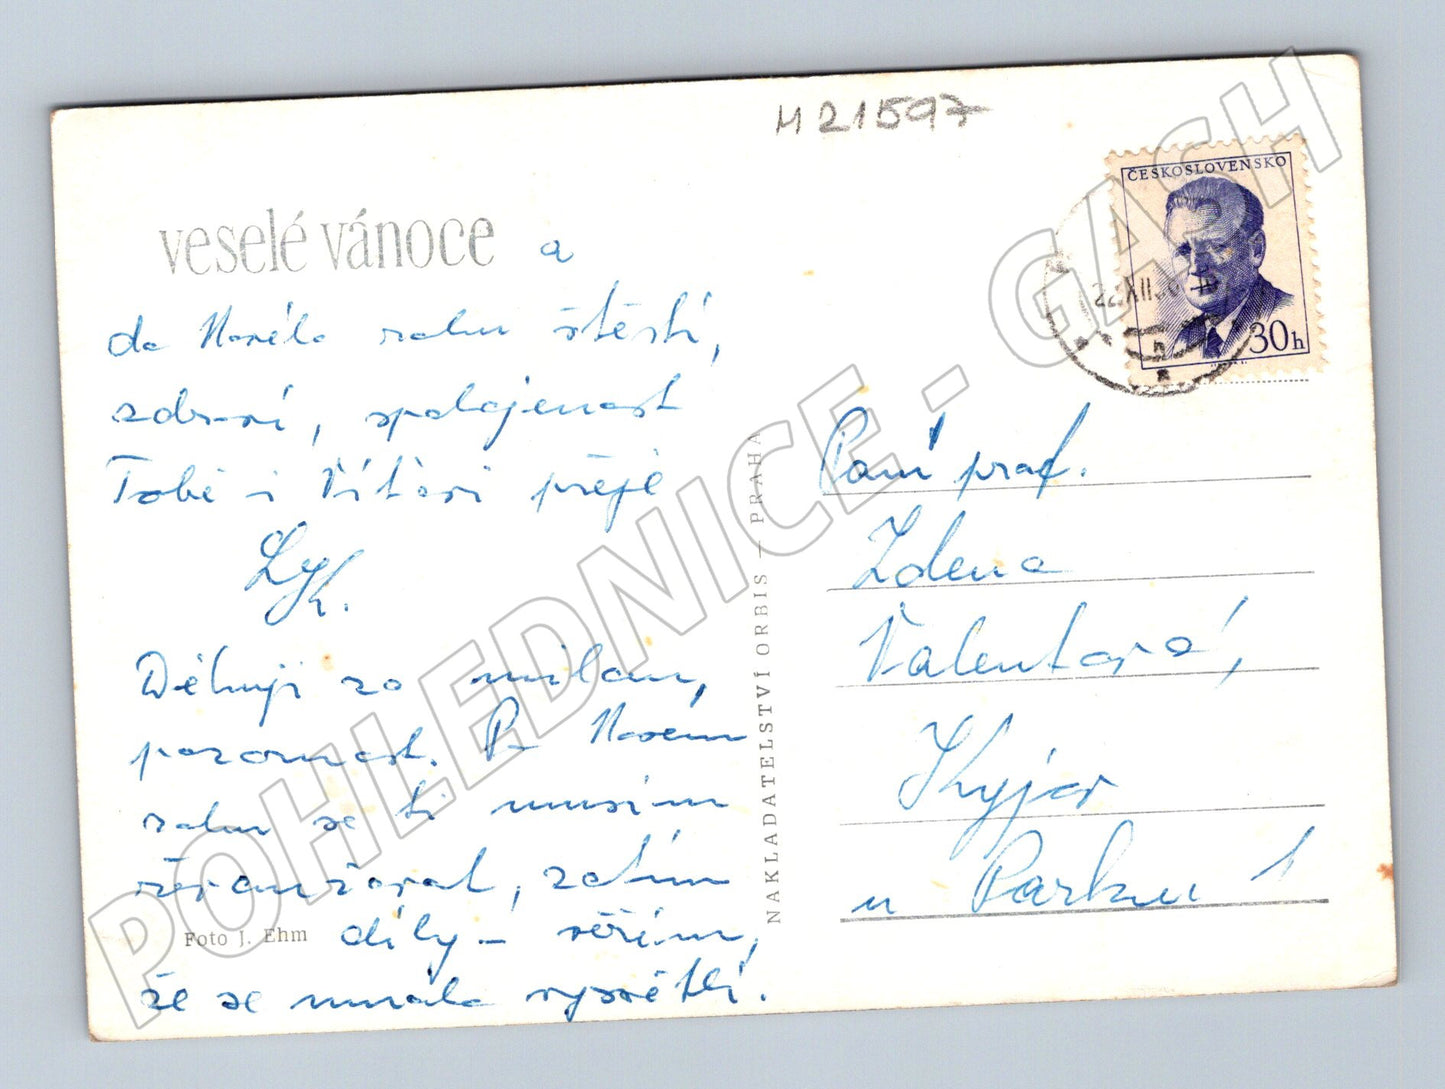 M 21597
ČESKOSLOVENSKO
30 h
22.XII.
veselé vánoce a
do Nového roku štěstí,
zdraví, spokojenost
Tobě i Vítovi přeje
Děkuji za milou,
pozornost. Po Novém
roku se ti musím
revanžovat, zatím
díky – věřím,
že se mnoho vysvětlí.
Foto J. Ehm
NAKLADATELSTVÍ ORBIS — PRAHA
Paní prof.
Zdena
Valentová,
Kyjov
u Parku 1
POHLEDNICE - GASH